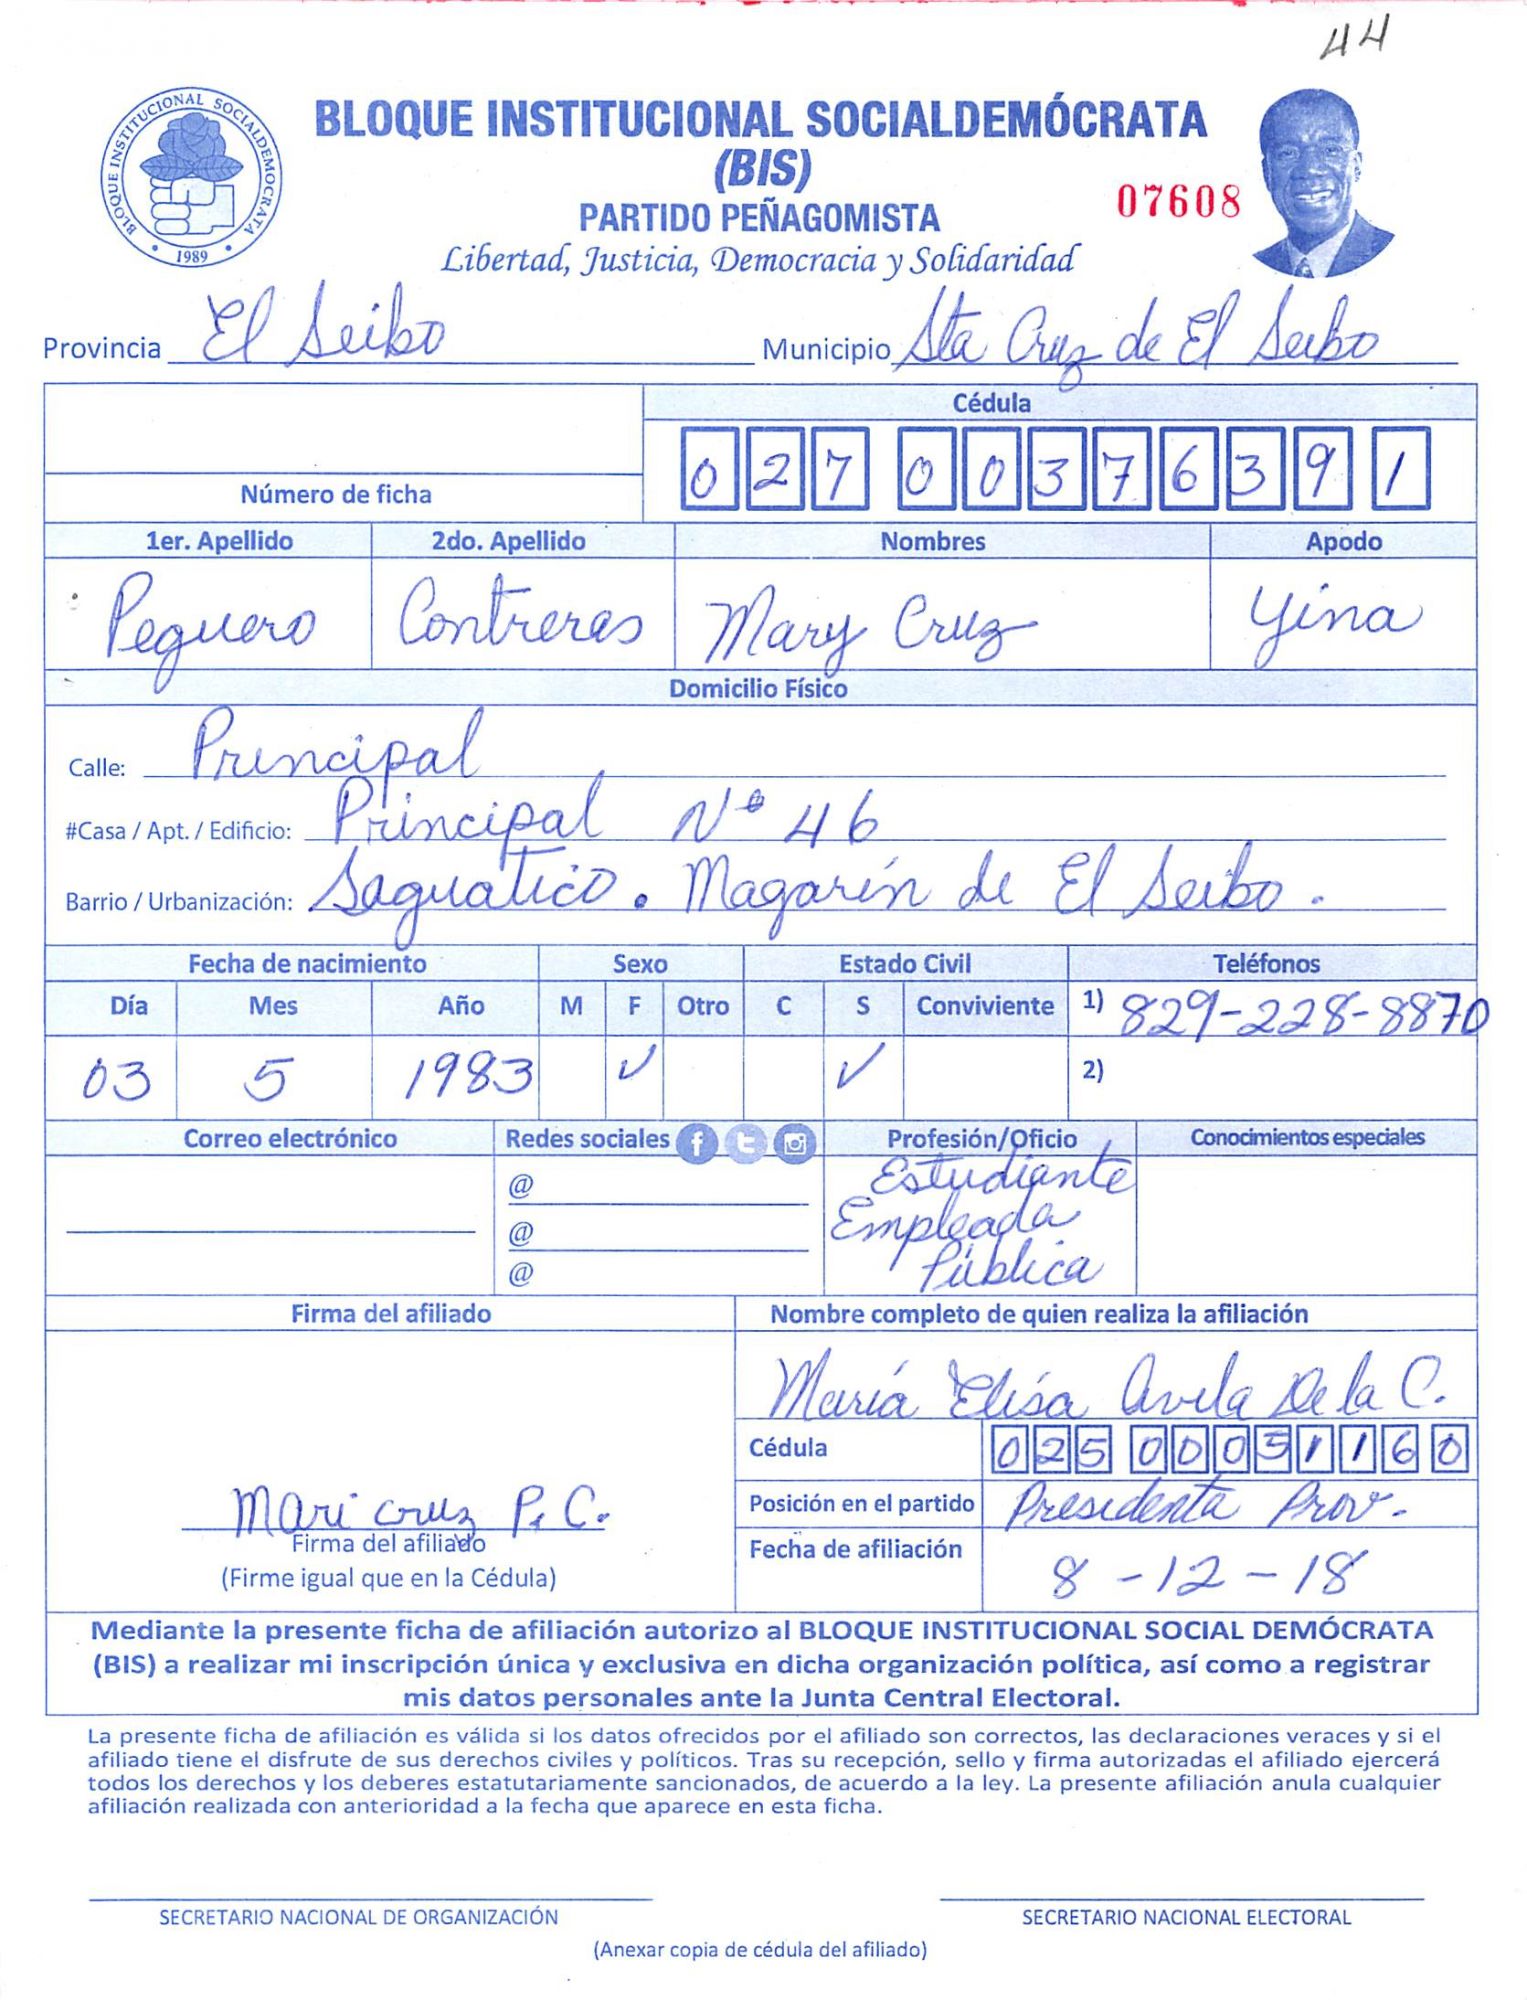 44
BLOQUE INSTITUCIONAL SOCIALDEMÓCRATA
(BIS)
PARTIDO PEÑAGOMISTA
07608
Libertad, Justicia, Democracia y Solidaridad
BLOQUE INSTITUCIONAL SOCIALDEMOCRATA
1989
Provincia El Seibo Municipio Sta Cruz de El Seibo
Cédula
027 0037639 1
Número de ficha
1er. Apellido 2do. Apellido Nombres Apodo
Peguero Contreras Mary Cruz Yina
Domicilio Físico
Calle: Principal
#Casa / Apt. / Edificio: Principal Nº 46
Barrio / Urbanización: Saguatico. Magarín de El Seibo.
Fecha de nacimiento Sexo Estado Civil Teléfonos
Día Mes Año M F Otro C S Conviviente 1) 829-228-8870
03 5 1983 ✓ ✓ 2)
Correo electrónico Redes sociales Profesión/Oficio Conocimientos especiales
@ Estudiante
@ Empleada
@ Pública
Firma del afiliado Nombre completo de quien realiza la afiliación
María Elisa Avila De la C.
Cédula 025 0003116 0
Mari cruz P. C. Posición en el partido Presidenta Prov.
Firma del afiliado Fecha de afiliación 8-12-18
(Firme igual que en la Cédula)
Mediante la presente ficha de afiliación autorizo al BLOQUE INSTITUCIONAL SOCIAL DEMÓCRATA
(BIS) a realizar mi inscripción única y exclusiva en dicha organización política, así como a registrar
mis datos personales ante la Junta Central Electoral.
La presente ficha de afiliación es válida si los datos ofrecidos por el afiliado son correctos, las declaraciones veraces y si el
afiliado tiene el disfrute de sus derechos civiles y políticos. Tras su recepción, sello y firma autorizadas el afiliado ejercerá
todos los derechos y los deberes estatutariamente sancionados, de acuerdo a la ley. La presente afiliación anula cualquier
afiliación realizada con anterioridad a la fecha que aparece en esta ficha.
SECRETARIO NACIONAL DE ORGANIZACIÓN SECRETARIO NACIONAL ELECTORAL
(Anexar copia de cédula del afiliado)